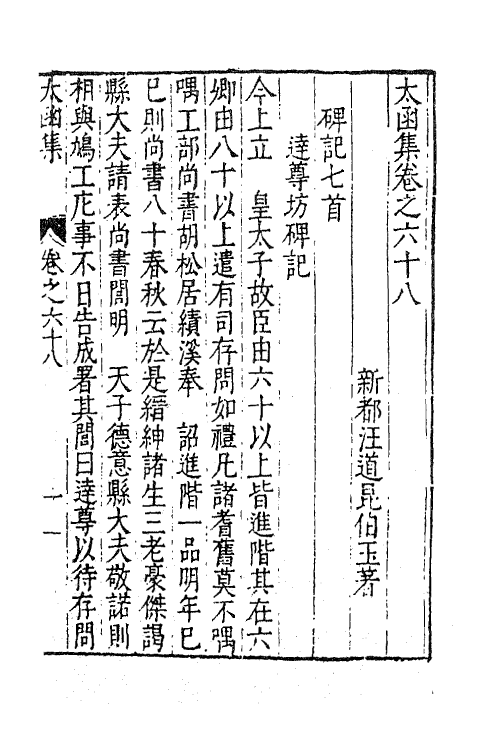 太函集卷之六十八
新都汪道昆伯玉著
碑記七首
達尊坊碑記
今上立　皇太子故臣由六十以上皆進階其在六
卿由八十以上遣有司存問如禮凡諸耆舊莫不喁
喁工部尚書胡松居績溪奉　詔進階一品明年巳
巳則尚書八十春秋云於是縉紳諸生三老豪傑謁
縣大夫請表尚書閭明　天子德意縣大夫敬諾則
相與鳩工庀事不日告成署其閭曰達尊以待存問
太函集　卷之六十八　一